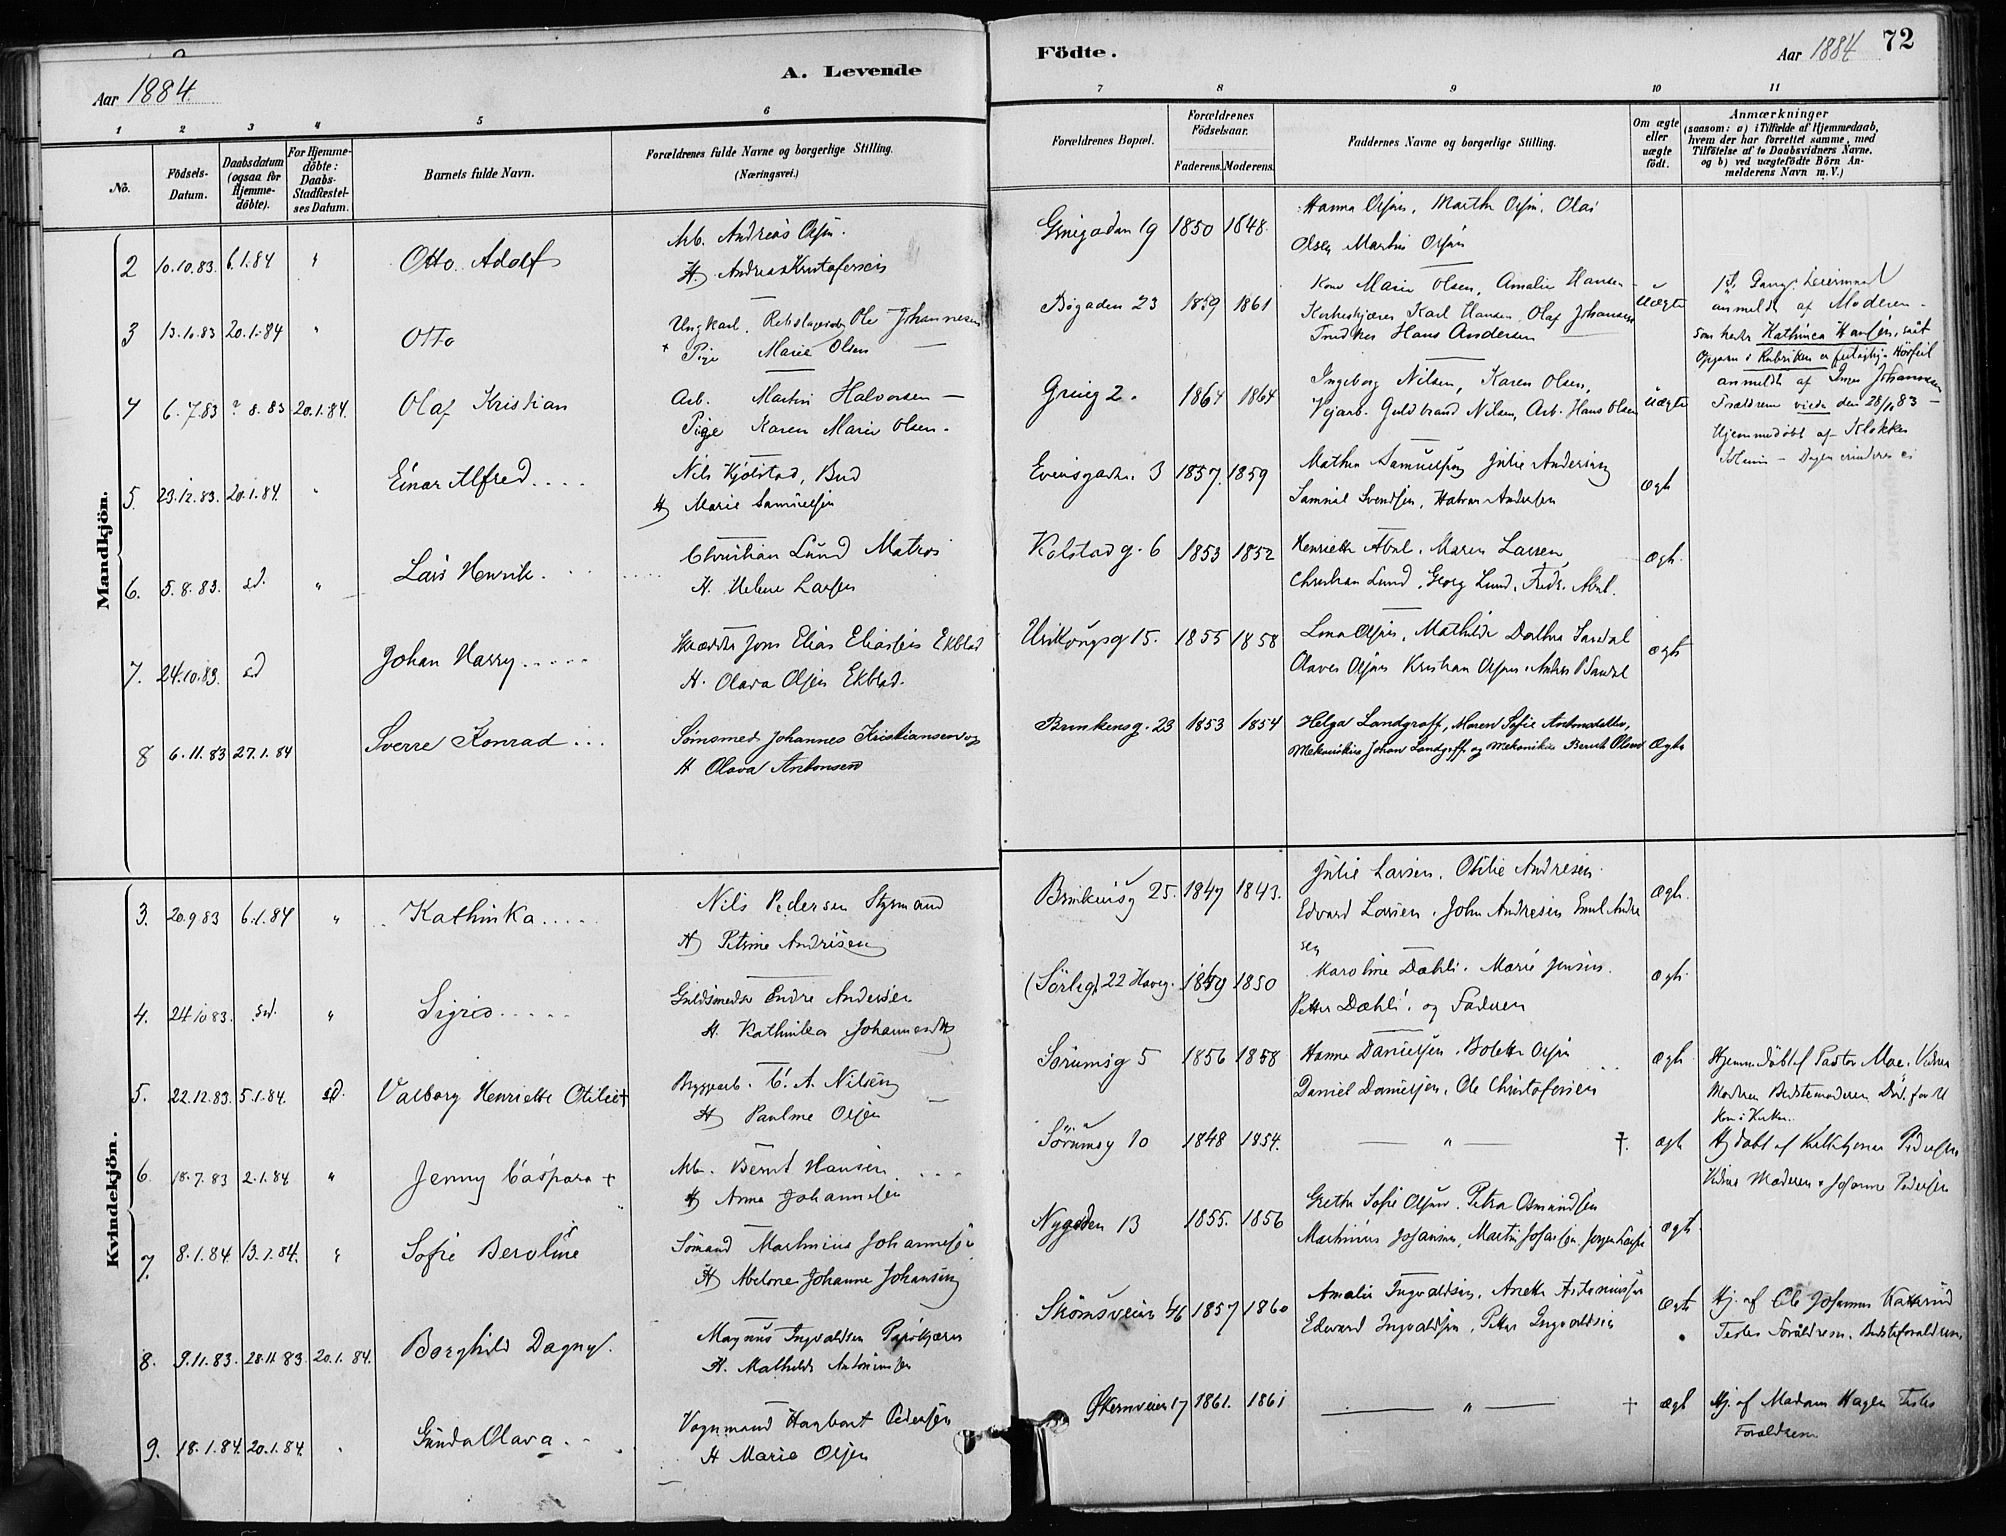 A. Levende
Födte.
72
Aar 1884
Aar 1884
1 2 3 4 5 6
7 8 9 10 11
No.
Födsels-
Datum.
Daabsdatum
(ogsaa för
Hjemme-
döbte).
For Hjemme-
döbte:
Daabs-
Stadfæstel-
ses Datum.
Barnets fulde Navn.
Forældrenes fulde Navne og borgerlige Stilling.
(Næringsvei.)
Forældrenes Bopæl.
Forældrenes
Födselsaar.
Faderens. Moderens.
Faddernes Navne og borgerlige Stilling.
Om ægte
eller
uægte
født.
Anmærkninger
(saasom: a) i Tilfælde af Hjemmedaab,
hvem der har forrettet samme, med
Tilföielse af to Daabsvidners Navne,
og b) ved uægtefödte Börn An-
melderens Navn m. V.)
Mandkjön.
2 10.10.83. 6.1.84 " Otto Adolf
Arb. Andreas Olsen.
H
19 1850 1848.
Hanna Olsen, Marthe Olsen, Olai
Olsen Martin Olsen
3 13.10.83 20.1.84 " Otto
Ungkarl. Ole Johannesen
+ Pige Marie Olsen —
Bøgaden 23 1859 1861
Kone Marie Olsen, Amalie Hansen
Karl Hansen, Olaf Johansen
Hans Andersen
Uægte
anmeldt af Moderen
som heder Kathinca Hansen,
4 6.7.83 ? 8.83 20.1.84. Olaf Kristian
Arb. Martin Halvorsen —
Pige Karen Marie Olsen.
Grüig 2. 1864 1864
Ingeborg Nilsen, Karen Olsen,
Vejarb. Guldbrand Nilsen, Arb. Hans Olsen
Uægte
anmeldt af Johannesen
Forældrene viede den 28/11 83 —
Hjemmedøbt af Klokker
5. 23.12.83. 20.1.84. " Einar Alfred....
Nils Kjølstad, Bud
H Marie Samuelsen
3 1857. 1859
Mathea Samuelsen Julie Andersen
Samuel Svendsen, Halvor Andersen
Ægte
6. 5.8.83. sd. " Lars Henrik.
Christian Lund Matros
H. Helene Larsen
Kolstadg. 6 1853 1852
Henriette Abel. Maren Larsen
Christian Lund, Georg Lund, Fredr. Abel.
Ægte.
7. 24.10.83. sd Johan Harry.....
Skrædder Jons Elias Eliassen Ekblad
H. Olava Olsen Ekblad.
15. 1855 1858
Lina Olsen, Mathilde Dorthea Sandal
Olaves Olsen Kristian Olsen. Anders P Sandal
Ægte
8 6.11.83 27.1.84 Sverre Konrad...
Johannes Kristiansen og
H Olava Antonsen
Brinkensg. 23 1853 1854
Helga Landgraff, Maren Sofie Antonsdatter,
Mekanikus Johan Landgraff og Mekanikus Bernt Olsen
Ægte
Kvindekjön.
3. 20.9.83 6.1.84 " Kathinka.....
Nils Pedersen Styrmand
H Petrine Andrisen
Brinkensg 25. 1847 1843.
Julie Larsen. Otilie Andresen.
Edvard Larsen. John Andresen Emil Andre
sen
Ægte.
4. 24.10.83. sd. " Sigrid.....
Guldsmeds. Endre Andersen
H. Kathinka Johannesdtr
(Sörligt 22 Haveg. 1859 1850
Karoline Dæhli. Marie Jensen.
Petter Dæhli. og Faderen
Ægte.
5. 22.12.83. 5.1.84. sd. Valborg Henriette Otilie +
Bryggearb. C. A. Nilsen
H Pauline Olsen
Sörumsg 5 1856 1858
Hanna Danielsen, Bolette Olsen
Daniel Danielsen, Ole Christofersen
Ægte.
Hjemmedöbt af Pastor Moe. Vidner
Moderen Bedstemoderen Död.
6. 18.7.83 2.1.84 " Jenny Caspara +
Arb. Bernt Hansen
H Anna Johannesen
Sörumsg 10 1848 1854.
— " — †.
ægte
Hj döbt af Pedersen
Vidner Moderen Johanne Pedersen
7. 8.1.84 13.1.84. " Sofie Beroline
Sömand Martinius Johannesen
H Abelone Johanne Johansen
Nygaden 13 1855. 1856
Grethe Sofie Olsen. Petra Osmundsen
Martinius Johansen, Martin Johansen. Jørgen Larsen
ægte.
8. 9.11.83. 28.11.83. 20.1.84. Borghild Dagny.
Magnus Ingvaldsen
H. Mathilde Antonsen
Strömsveien 46 1857 1860
Amalie Ingvaldsen, Anette Antoniussen
Edvard Ingvaldsen, Petter Ingvaldsen
Ægte
Hj. af Ole Johannes
Testes Forældrene. Bedsteforældrene
9. 18.1.84. 20.1.84. Gunda Olava..
Vognmand Hagbart Pedersen
H Marie Olsen
Økernveien 17 1861. 1861
— " — +
ægte
Hj. af Madam Hagen Testes
Forældrene